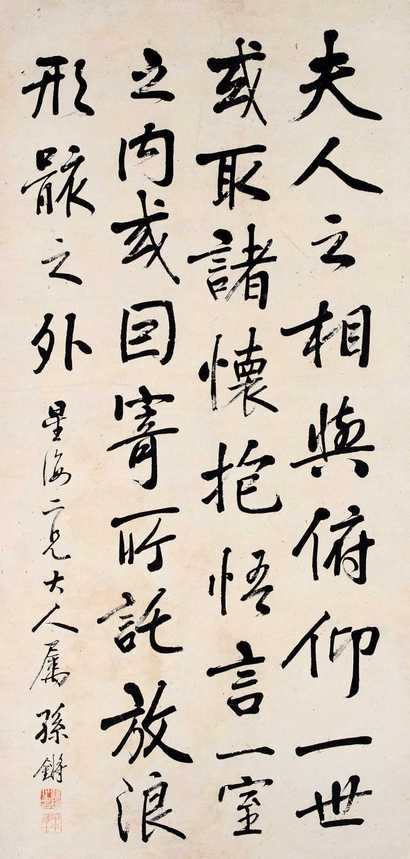 夫人之相與俯仰一世
或取諸懷抱悟言一室
之内或因寄所託放浪
形骸之外
星海二兄大人屬 孫鏘